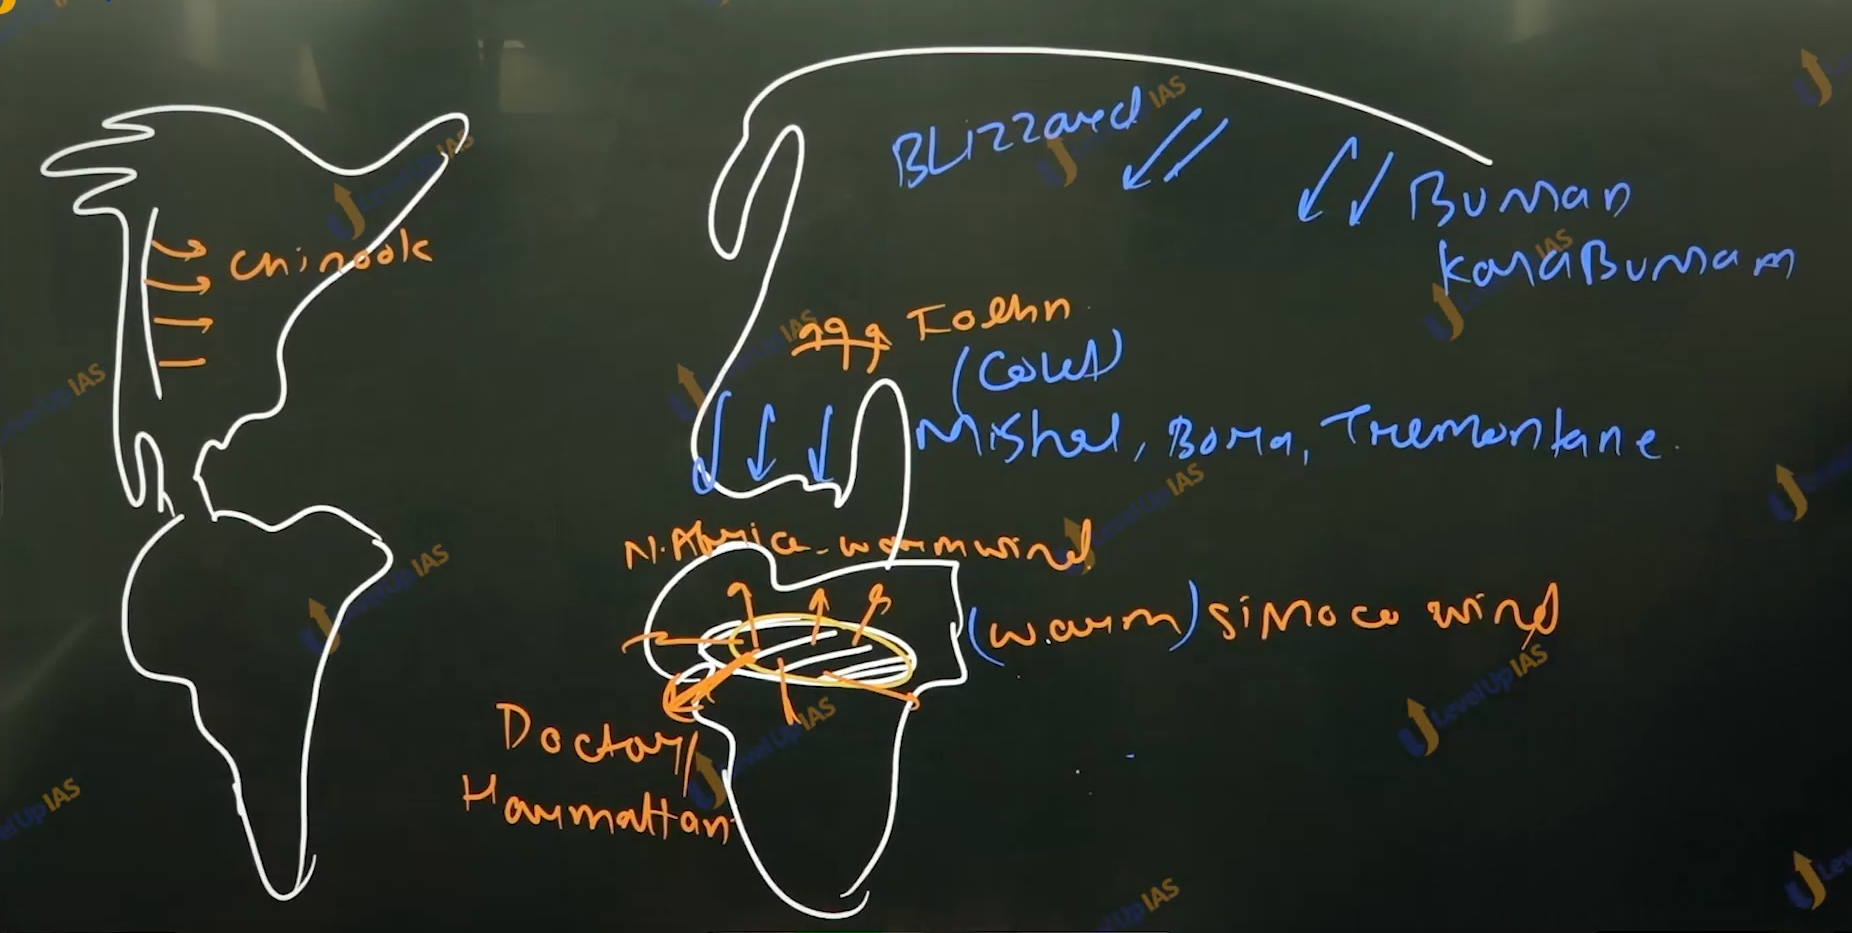 BLizzard
Buran
KaraBuram
Chinook
Foehn
(Cold)
Mistral, Bora, Tremontane.
N. Africa - warm wind
(warm) siroco wind
Doctor/
Harmattan
LevelUp IAS